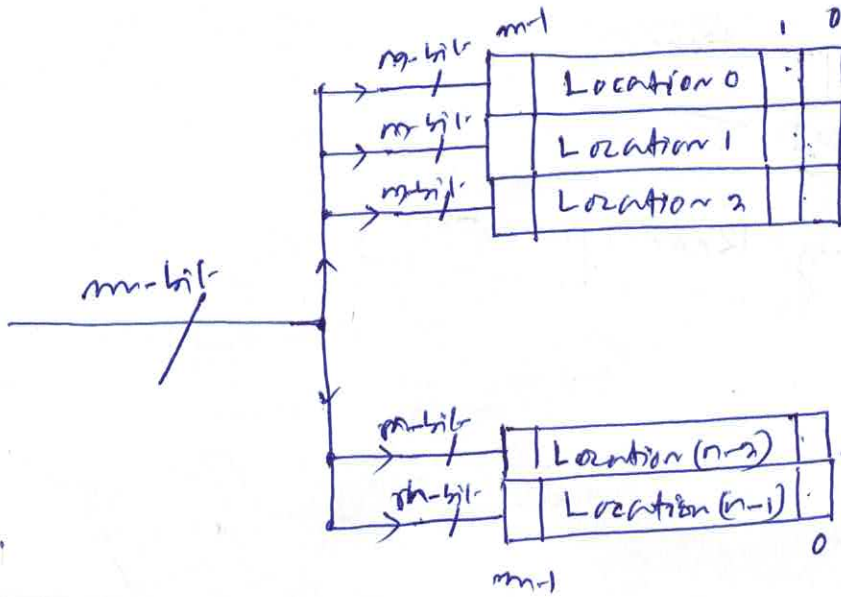 m-1 1 0
m-bit Location 0
m-bit Location 1
m-bit Location 2
m-bit
m-bit Location (n-2)
m-bit Location (n-1)
0
m-1